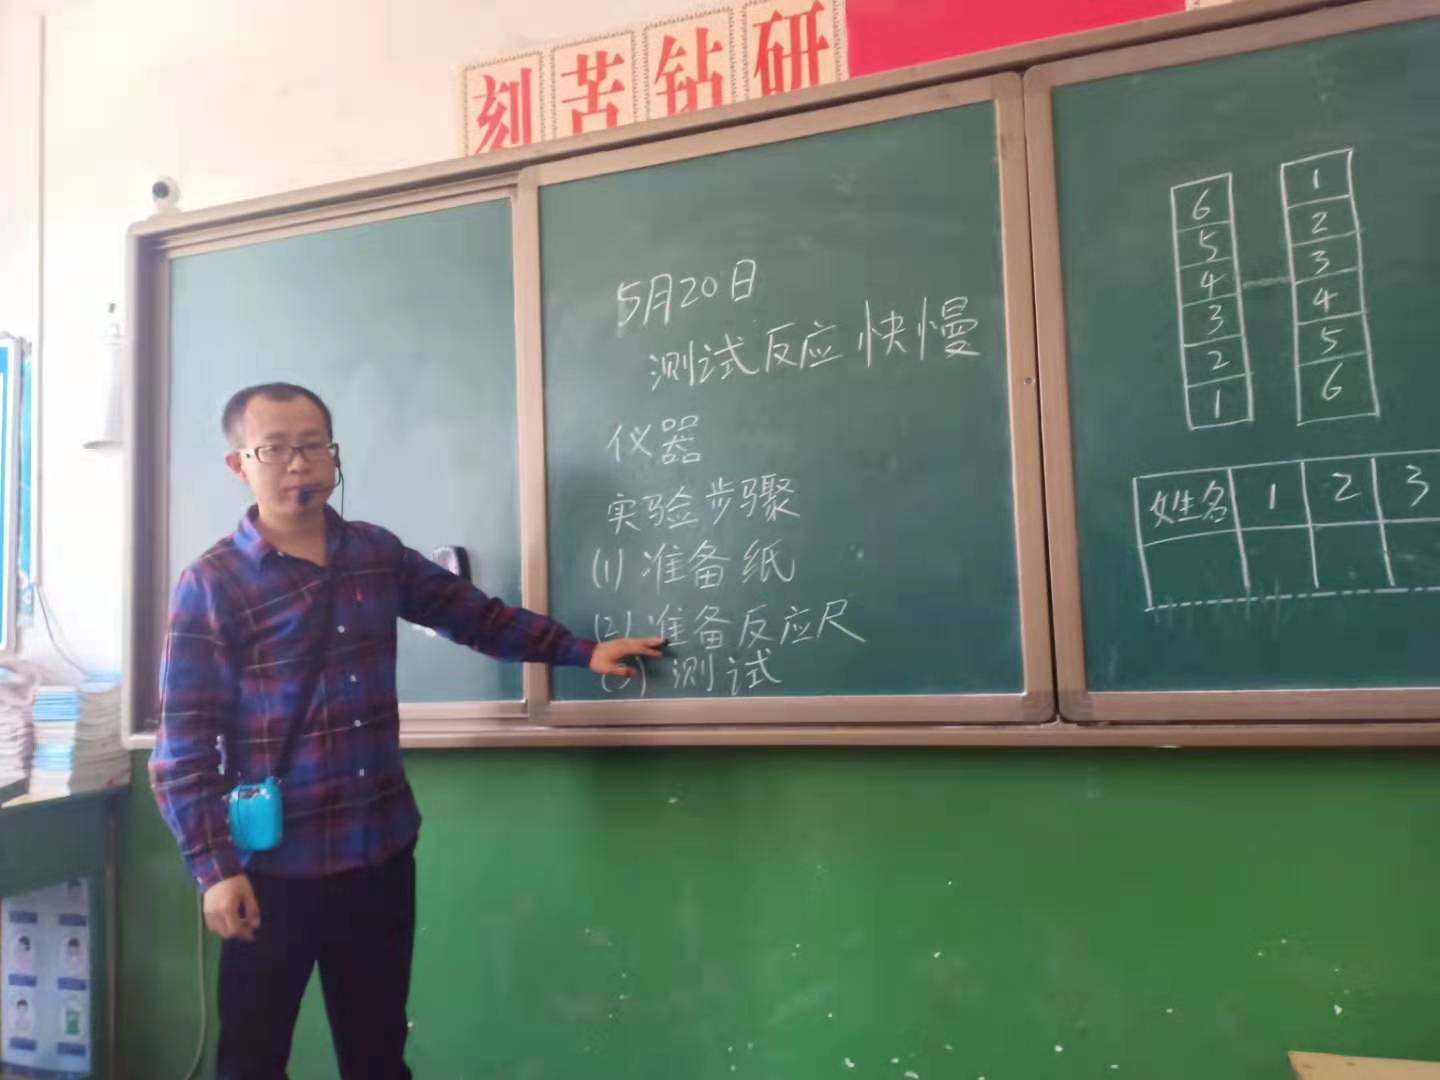 刻苦钻研
5月20日
测试反应快慢
仪器
实验步骤
(1) 准备纸
(2) 准备反应尺
(3) 测试
6 1
5 2
4 3
3 4
2 5
1 6
姓名 1 2 3